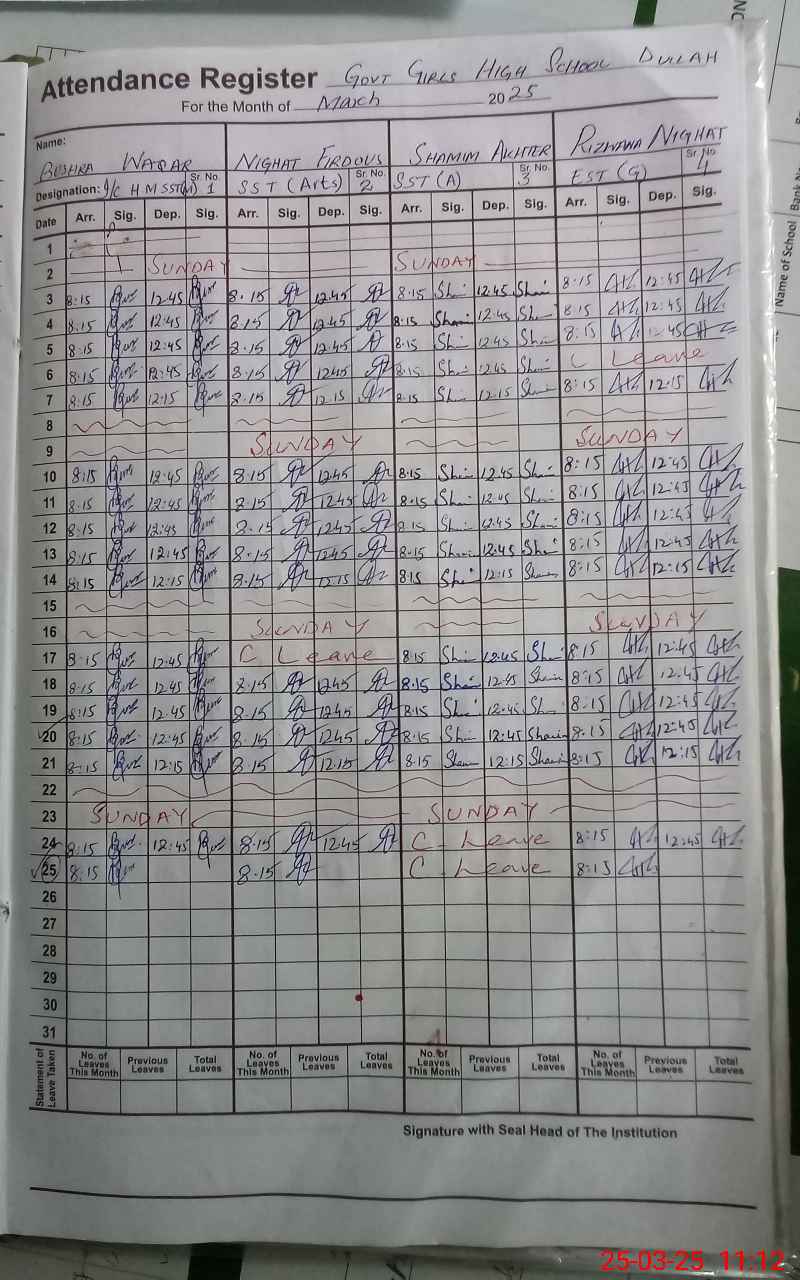 Attendance Register GOVT GIRLS HIGH SCHOOL DULLAH
For the Month of March 2025
Name:
BUSHRA WAQAR NIGHAT FIRDOUS SHAMIM AKHTER RIZWANA NIGHAT
Designation: I/C H M SST(M) Sr. No. 1 SST (Arts) Sr. No. 2 SST (A) Sr. No. 3 EST (G) Sr. No. 4
Date Arr. Sig. Dep. Sig. Arr. Sig. Dep. Sig. Arr. Sig. Dep. Sig. Arr. Sig. Dep. Sig.
1
2 SUNDAY SUNDAY
3 8:15 12:45 8:15 12:45 8:15 Sha 12:45 Sham 8:15 12:45
4 8:15 12:45 8:15 12:45 8:15 Sham 12:45 Sha 8:15 12:45
5 8:15 12:45 8:15 12:45 8:15 Sha 12:45 Sha 8:15 12:45
6 8:15 12:45 8:15 12:45 8:15 Sha 12:45 Sha C Leave
7 8:15 12:15 8:15 12:15 8:15 Sha 12:15 Sham 8:15 12:15
8
9 SUNDAY SUNDAY
10 8:15 12:45 8:15 12:45 8:15 Sha 12:45 Sha 8:15 12:45
11 8:15 12:45 8:15 12:45 8:15 Sha 12:45 Sha 8:15 12:45
12 8:15 12:45 8:15 12:45 8:15 Sha 12:45 Sha 8:15 12:45
13 8:15 12:45 8:15 12:45 8:15 Sha 12:45 Sha 8:15 12:45
14 8:15 12:15 8:15 12:15 8:15 Sha 12:15 Sham 8:15 12:15
15
16 SUNDAY SUNDAY
17 8:15 12:45 C Leave 8:15 Sha 12:45 Sha 8:15 12:45
18 8:15 12:45 8:15 12:45 8:15 Sha 12:45 Sham 8:15 12:45
19 8:15 12:45 8:15 12:45 8:15 Sha 12:45 Sha 8:15 12:45
20 8:15 12:45 8:15 12:45 8:15 Sha 12:45 Sham 8:15 12:45
21 8:15 12:15 8:15 12:15 8:15 Sham 12:15 Sham 8:15 12:15
22
23 SUNDAY SUNDAY
24 8:15 12:45 8:15 12:45 C Leave 8:15 12:45
25 8:15 8:15 C Leave 8:15
26
27
28
29
30
31
Statement of Leave Taken No. of Leaves This Month Previous Leaves Total Leaves No. of Leaves This Month Previous Leaves Total Leaves No. of Leaves This Month Previous Leaves Total Leaves No. of Leaves This Month Previous Leaves Total Leaves
Signature with Seal Head of The Institution
Name of School
25-03-25 11:12